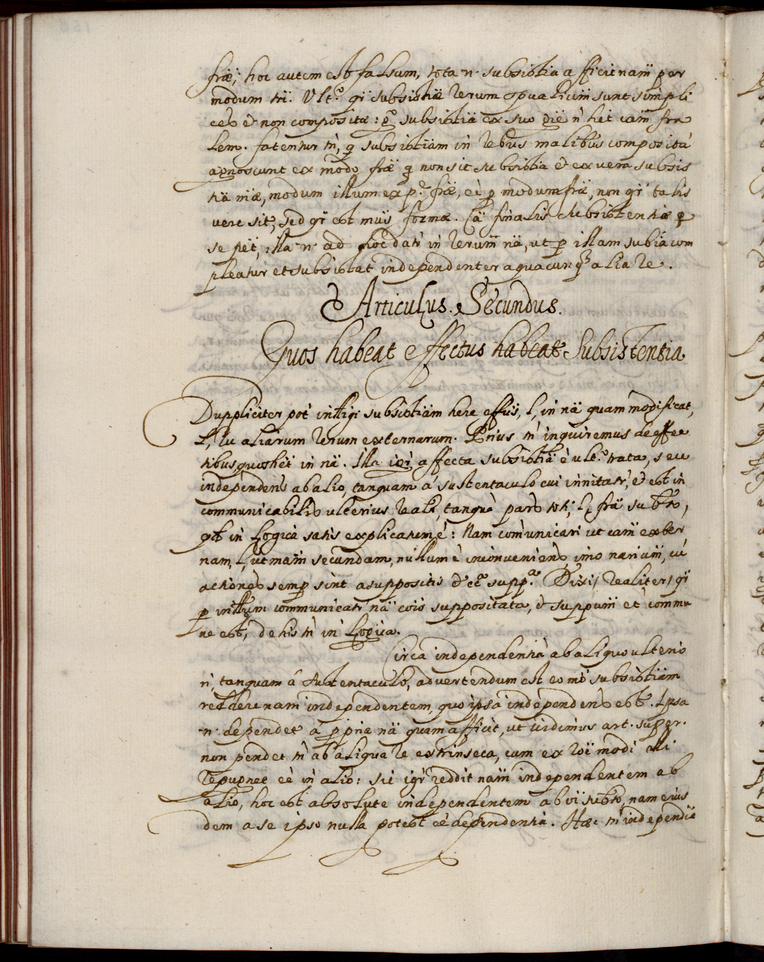 fræ, hoc autem est falsum, tota n. subsistia afficit nam per
modum Ult.º qi subsistiæ rerum spualium sunt simpli
ces et non compositæ: subsistia ex suo n het cam
lem. fatentur tn, q subsistiam in rebus malibus composita
agnoscunt ex modo fræ q non sit subsistia et ex vera subsis
tia miæ, modum illum ex p.e fræ, eé q modum fræ, non qi talis
vere sit, sed qi est formæ. Ca finalis subsistentiæ
se illa n. ad hoc dati in rerum nä, ut p illam subia com
pleatur et subsistat independenter a quacunq alia re.
Articulus Secundus.
Quos habeat effectus habeat Subsistentia
Duppliciter pot' intlligi subsistiam here effus, l, in nä quam modificat,
l, in aliarum rerum externarum. Prius tn inquiremus de effec
tibus quos het in nä. Illa affecta subsistiä é ult.º trata, seu
independens ab alio, tanquam a sustentaculo cui innitatr, et est in
communicabilis ulterius reali, tanquè pars toti, l, frä sub.to,
qd in Logica satis explicatum é: Nam com'unicari ut cam exter
nam, l, ut mam secundam, nullum é inconveniens imo narium, cù
actiones semp sint a suppositis Dixi, realiter, qi
p intllum communicati nä cois suppositata, et suppum et commu
ne est, de his tn in Logica.
Circa independentiä ab aliquo ulterio
ri tanquam â sustentaculo, advertendum est eo mö subsistiam
reddere nam independentem, quo ipsa independens est. Ipsa
n. dependet â pprie nä quam afficit, ut vidimus art. super.
non pendet tn ab aliqua re extrinseca, cum ex roi modi illi
repugnet eé in alio: sic igi' reddit nam independentem ab
alio, hoc est absolute independentem ab oi subto, nam eius
dem a se ipso nulla potest eé dependentia. Hæc tn independia